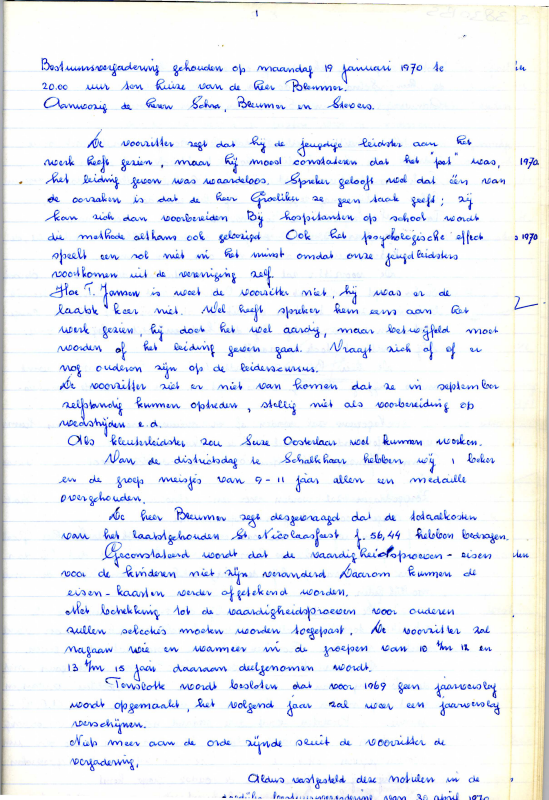 1
Bestuursvergadering gehouden op maandag 19 januari 1970 te
20.00 uur ten huize van de heer Bleumer.
Aanwezig de heren Schra, Bleumer en Stevens.
De voorzitter zegt dat hij de jeugdige leidster aan het
werk heeft gezien, maar hij moest constateren dat het "pet" was,
het leiding geven was waardeloos. Spreker gelooft wel dat één van
de oorzaken is dat de heer ze geen taak geeft; zij
kan zich dan voorbereiden Bij hospitanten op school wordt
die methode althans ook gebezigd Ook het psychologische effect
speelt een rol niet in het minst omdat onze jeugdleidsters
voortkomen uit de vereniging zelf.
Hoe T. Jansen is weet de voorzitter niet, hij was er de
laatste keer niet. Wel heeft spreker hem eens aan het
werk gezien, hij doet het wel aardig, maar betwijfeld moet
worden of het leiding geven gaat. Vraagt zich af of er
nog ouderen zijn op de leiderscursus.
De voorzitter ziet er niet van komen dat ze in september
zelfstandig kunnen optreden, stellig niet als voorbereiding op
wedstrijden e.d.
Als kleuterleidster zou Suze Oosterlaar wel kunnen werken.
Van de districtsdag te Schalkhaar hebben wij 1 beker
en de groep meisjes van 9-11 jaar allen een medaille
overgehouden.
De heer Bleumer zegt desgevraagd dat de totaalkosten
van het laatstgehouden St. Nicolaasfeest f. 56,44 hebben bedragen.
Geconstateerd wordt dat de vaardigheidsproeven-eisen
voor de kinderen niet zijn veranderd Daarom kunnen de
eisen-kaarten verder afgetekend worden.
Met betrekking tot de vaardigheidsproeven voor ouderen
zullen selecties moeten worden toegepast. De voorzitter zal
nagaan wie en wanneer in de groepen van 10 t/m 12 en
13 t/m 15 jaar daaraan deelgenomen wordt.
Tenslotte wordt besloten dat voor 1969 geen jaarverslag
wordt opgemaakt, het volgend jaar zal weer een jaarverslag
verschijnen.
Niets meer aan de orde zijnde sluit de voorzitter de
vergadering.
Aldus vastgesteld deze notulen in de
bestuursvergadering van 30 april 1970
1970
1970